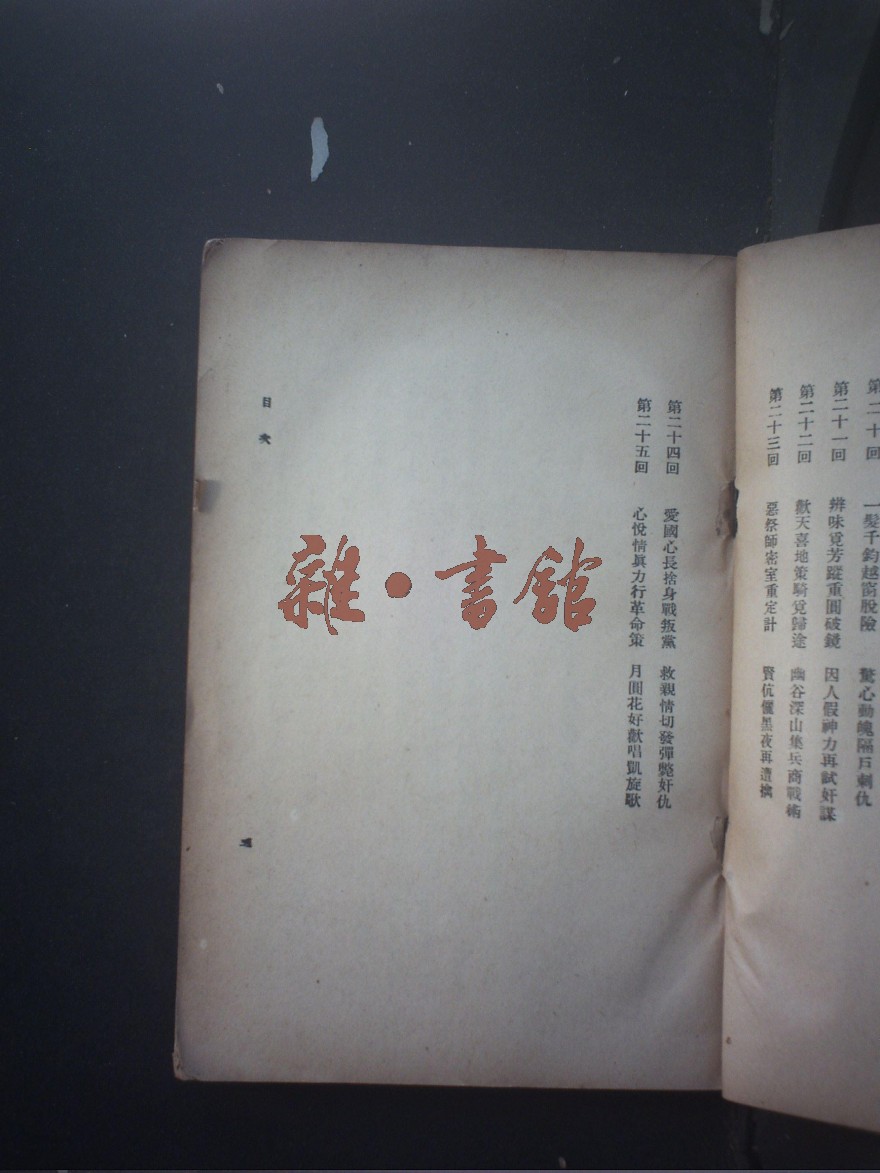 第二十回　一髮千鈞越窗脫險　驚心動魄隔戶刺仇
第二十一回　辨味覓芳蹤重圓破鏡　因人假神力再試奸謀
第二十二回　歡天喜地策騎覓歸途　幽谷深山集兵商戰術
第二十三回　惡祭師密室重定計　賢伉儷黑夜再遭擒
第二十四回　愛國心長捨身戰叛黨　救親情切發彈斃奸仇
第二十五回　心悅情眞力行革命策　月圓花好歡唱凱旋歌
目次
三
雜·書館